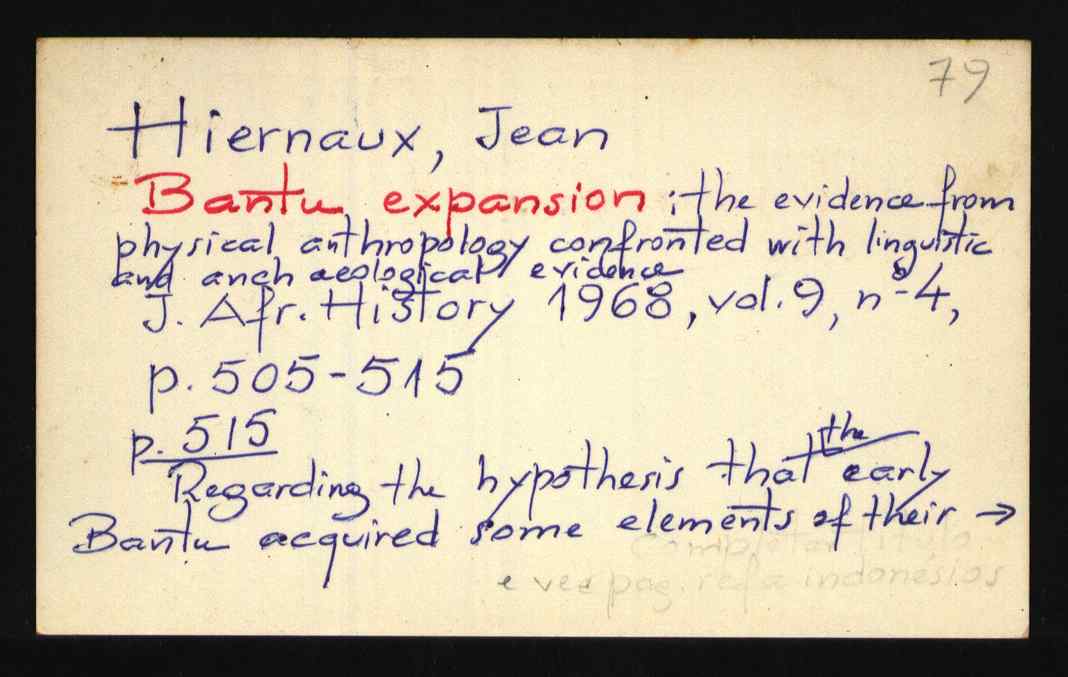 79
Hiernaux, Jean
Bantu expansion : the evidence from
physical anthropology confronted with linguistic
and anch aeological evidence
J. Afr. History 1968, vol. 9, nº 4,
p. 505-515
p. 515
Regarding the hypothesis that the early
Bantu acquired some elements of their →
Completar titulo
e ver pag. ref a indonésios